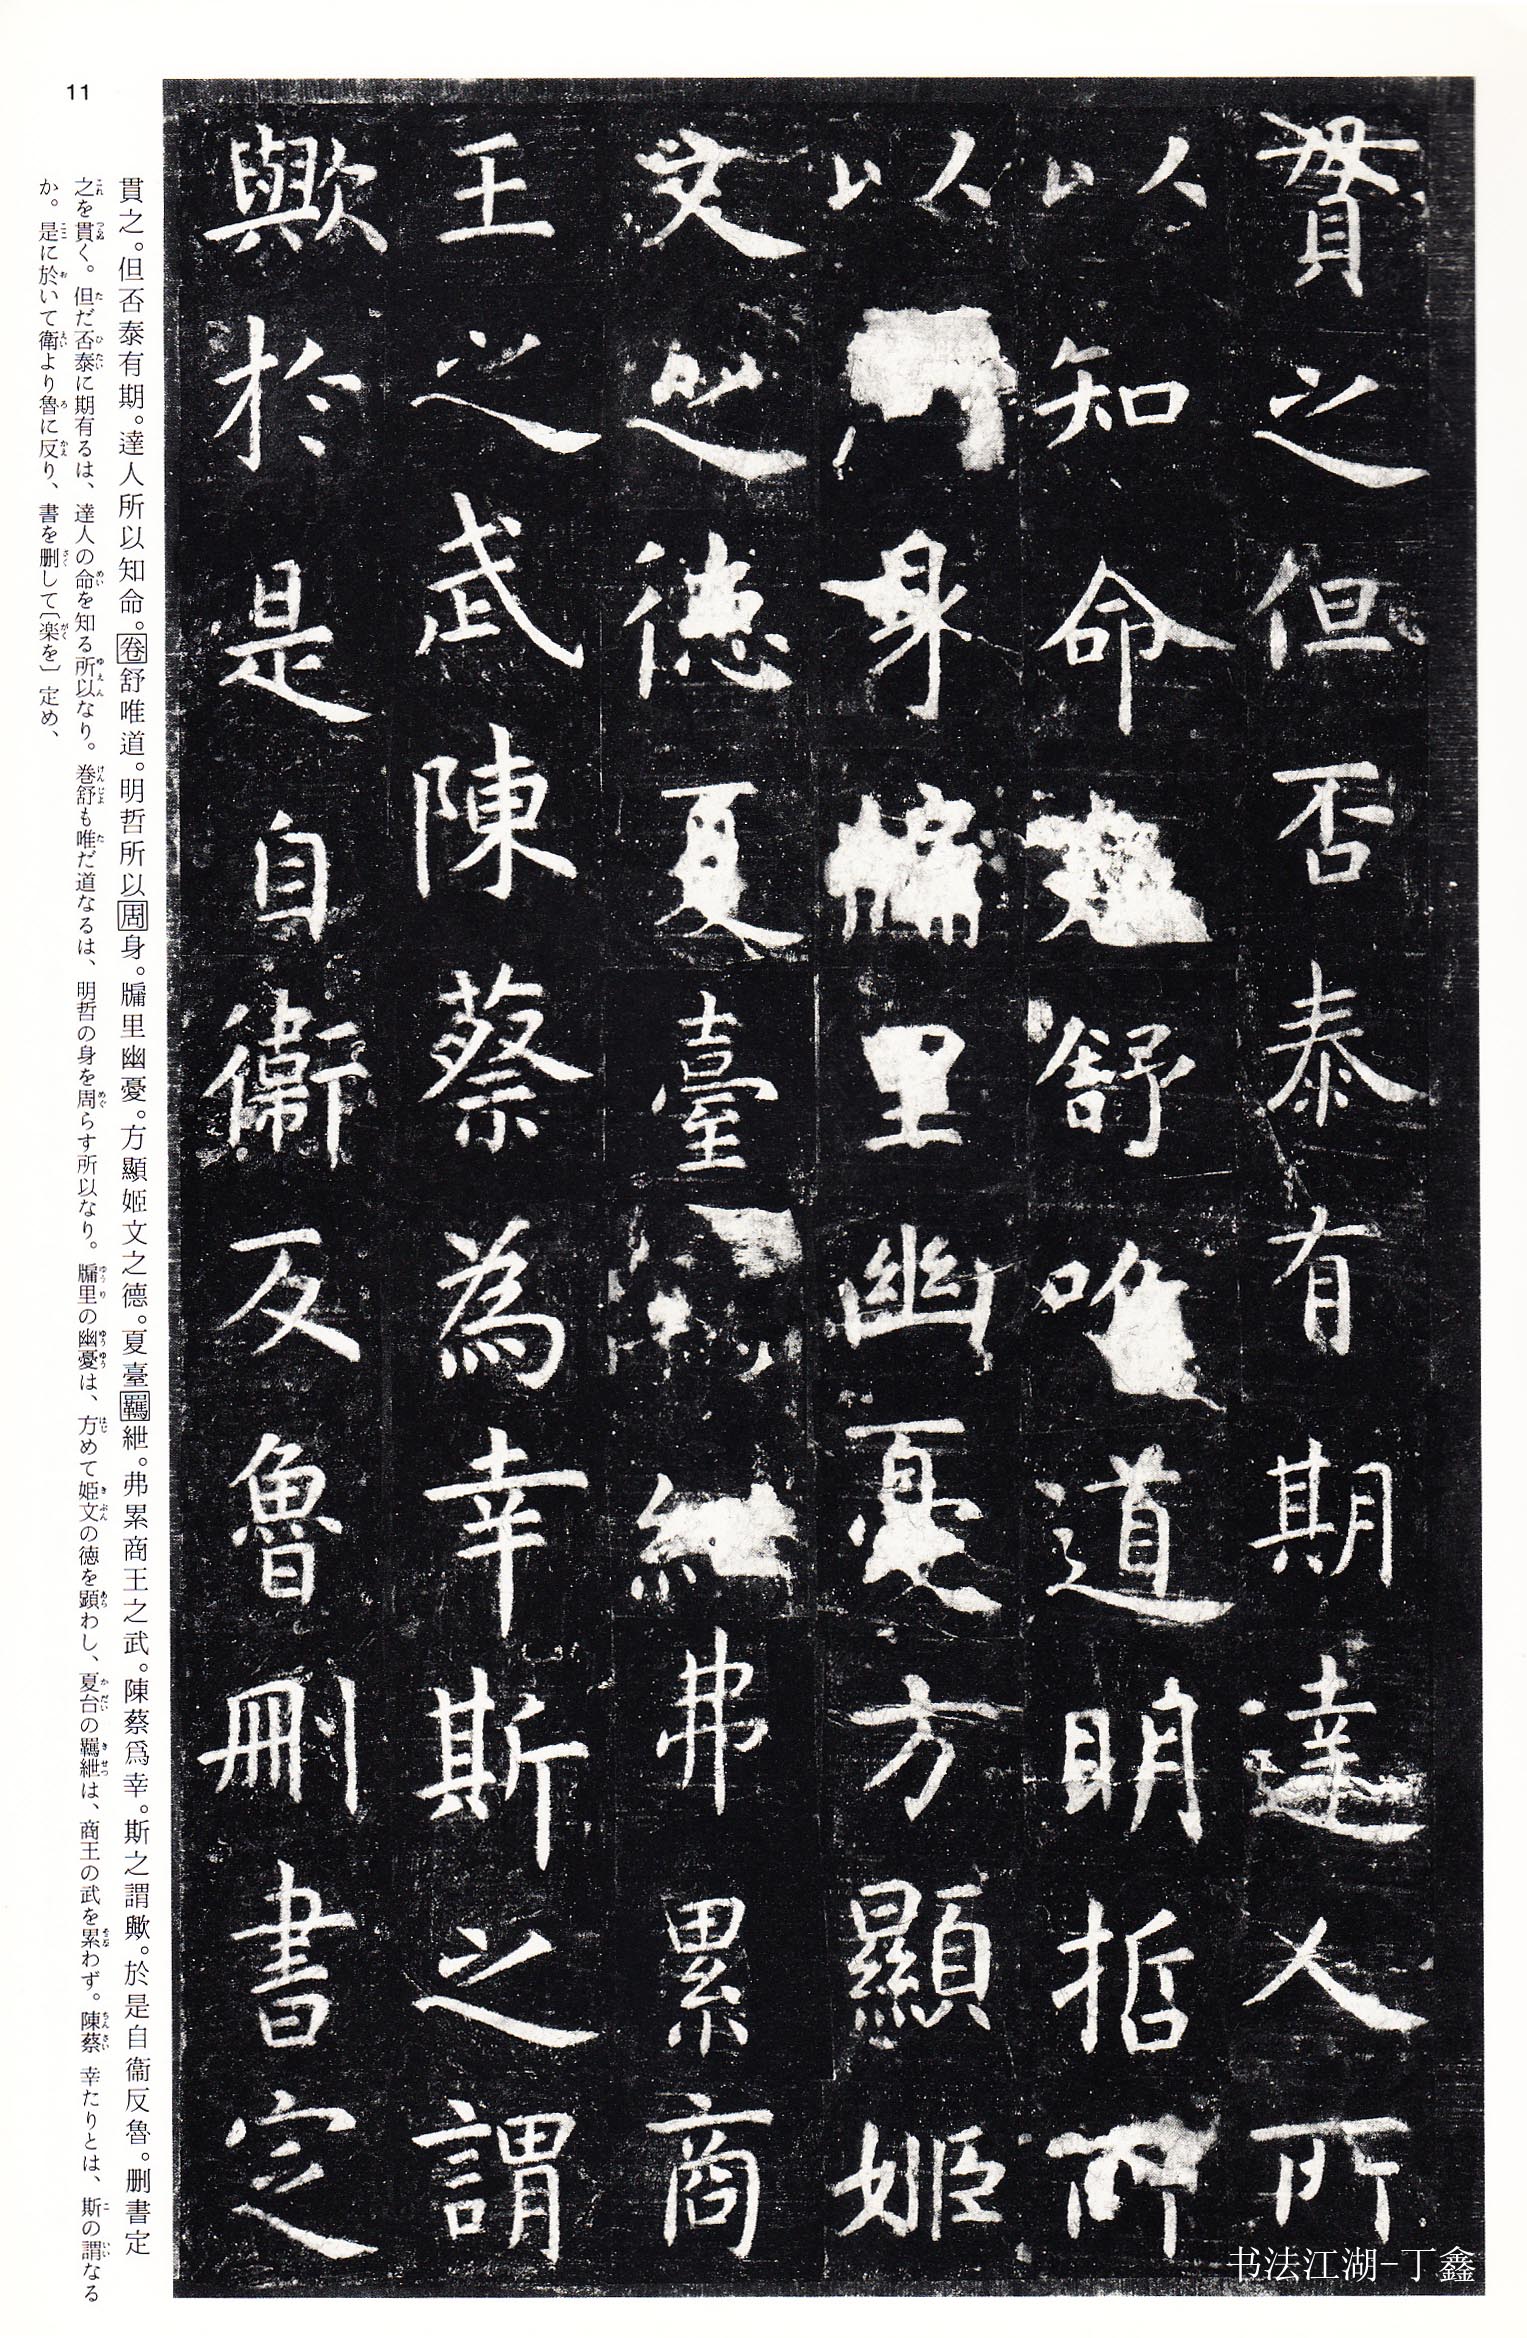 貫之但否泰有期達人所
以知命卷舒唯道明哲所
以身牖里幽憂方顯姬
文之德夏臺紲弗累商
王之武陳蔡為幸斯之謂
歟於是自衛反魯刪書定
貫之。但否泰有期。達人所以知命。卷舒唯道。明哲所以周身。牖里幽憂。方顯姬文之德。夏臺羈紲。弗累商王之武。陳蔡爲幸。斯之謂歟。於是自衞反魯。刪書定
之を貫く。但だ否泰に期有るは、達人の命を知る所以なり。巻舒も唯だ道なるは、明哲の身を周らす所以なり。牖里の幽憂は、方めて姫文の徳を顕わし、夏台の羈紲は、商王の武を累わず。陳蔡 幸たりとは、斯の謂なる
か。是に於いて衛より魯に反り、書を删して〔楽を〕定め、
11
书法江湖-丁鑫